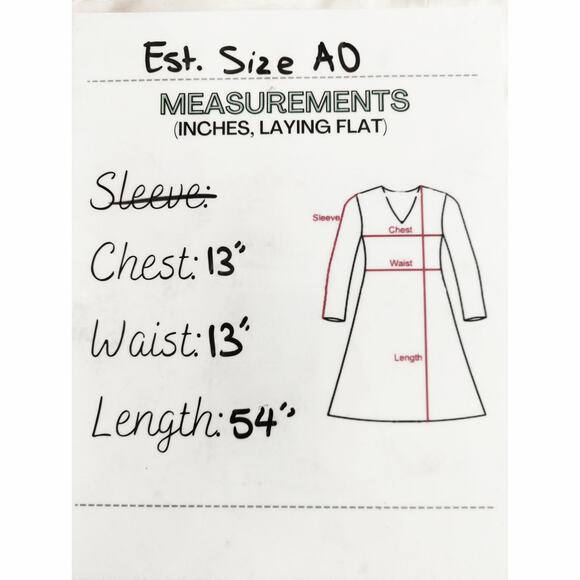 Est. Size AO
MEASUREMENTS
(INCHES, LAYING FLAT)
Sleeve:
Chest: 13"
Waist: 13"
Length: 54"
Sleeve
Chest
Waist
Length